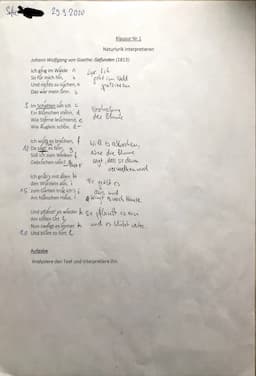 29.9.2020
Klausur Nr.1
Naturlyrik interpretieren
Johann Wolfgang von Goethe: Gefunden (1813)
Ich ging im Walde
So für mich hin,
Und nichts zu suchen,
Das war mein Sinn.
Lyr. Ich
geht im Wald
spazieren
5 Im Schatten sah ich
Ein Blümchen stehn,
Wie Sterne leuchtend,
Wie Äuglein schön.
der Blume
Ich wollt es brechen,
10 Da sagt es fein:
Soll ich zum Welken
Gebrochen sein?
Will es
die Blume
sagt, dass sie dann
Ich grub's mit allen
Den Würzlein aus,
15 Zum Garten trug ich's
Am hübschen Haus.
Er gräbt es
aus und
nach Hause
Und pflanzt es wieder
Am stillen Ort;
Nun zweigt es immer
20 Und blüht so fort.
es ein
und es blüht
Aufgabe
Analysiere den Text und interpretiere ihn.